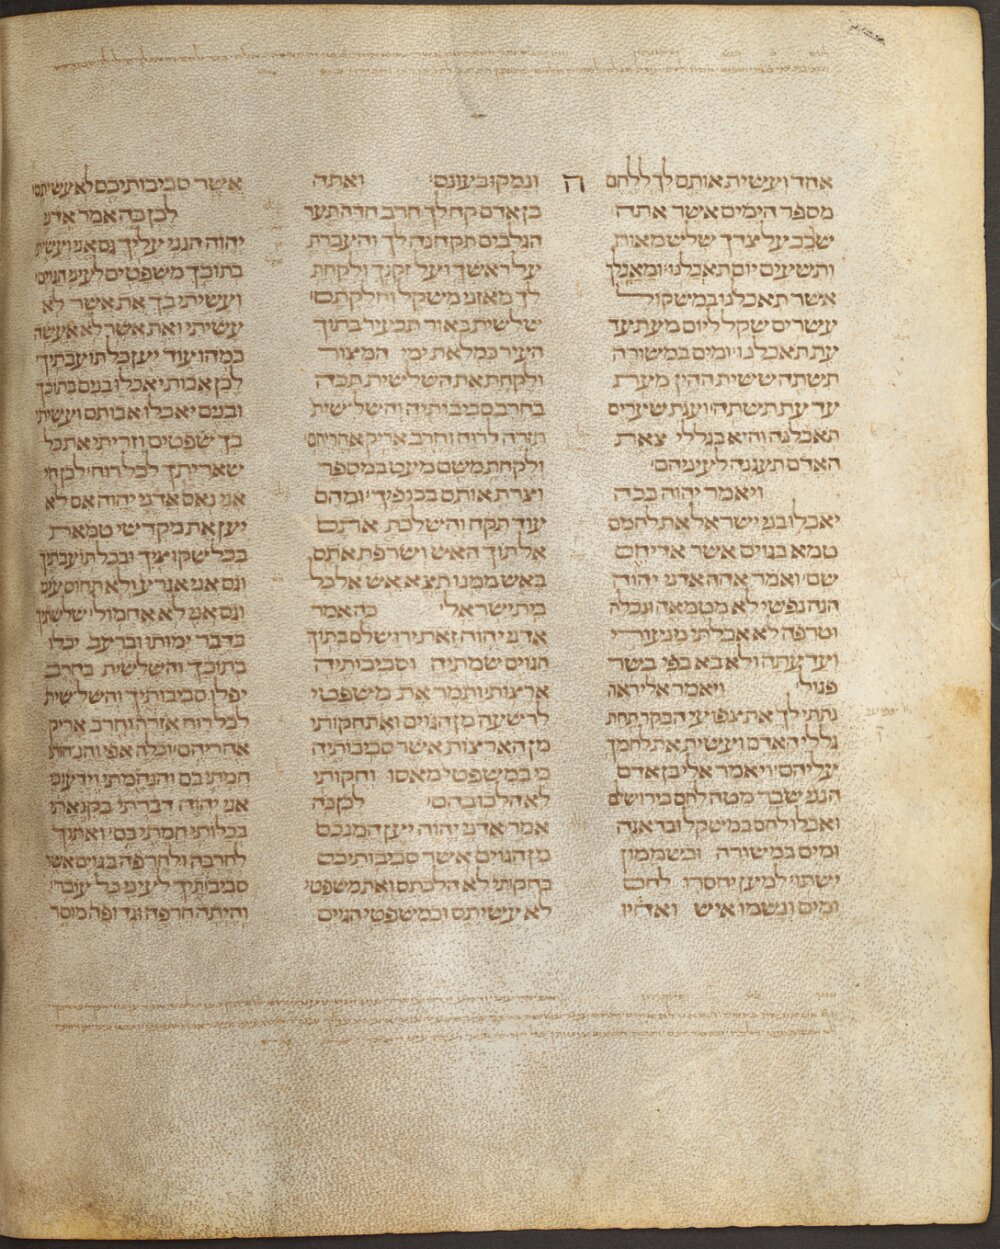 אחד ועשית אותם לך ללחם
מספר הימים אשר אתה
שכב על צדך שלש מאות
ותשעים יום תאכלנו ומאכלך
אשר תאכלנו במשקול
עשרים שקל ליום מעת עד
עת תאכלנו ומים במשורה
תשתה ששית ההין מעת
עד עת תשתה ועגת שערים
תאכלנה והיא בגללי צאת
האדם תעגנה לעיניהם
ויאמר יהוה ככה
יאכלו בני ישראל את לחמם
טמא בגוים אשר אדיחם
שם ואמר אהה אדני יהוה
הנה נפשי לא מטמאה ונבלה
וטרפה לא אכלתי מנעורי
ועד עתה ולא בא בפי בשר
פגול ויאמר אלי ראה
נתתי לך את צפועי הבקר תחת
גללי האדם ועשית את לחמך
עליהם ויאמר אלי בן אדם
הנני שבר מטה לחם בירושלים
ואכלו לחם במשקל ובדאגה
ומים במשורה ובשממון
ישתו למען יחסרו לחם
ומים ונשמו איש ואחיו
ה
ונמקו בעונם ואתה
בן אדם קח לך חרב חדה תער
הגלבים תקחנה לך והעברת
על ראשך ועל זקנך ולקחת
לך מאזני משקל וחלקתם
שלשית באור תבעיר בתוך
העיר כמלאת ימי המצור
ולקחת את השלשית תכה
בחרב סביבותיה והשלשית
תזרה לרוח וחרב אריק אחריהם
ולקחת משם מעט במספר
וצרת אותם בכנפיך ומהם
עוד תקח והשלכת אותם
אל תוך האש ושרפת אתם
באש ממנו תצא אש אל כל
בית ישראל כה אמר
אדני יהוה זאת ירושלם בתוך
הגוים שמתיה וסביבותיה
ארצות ותמר את משפטי
לרשעה מן הגוים ואת חקותי
מן הארצות אשר סביבותיה
כי במשפטי מאסו וחקותי
לא הלכו בהם לכן כה
אמר אדני יהוה יען המנכם
מן הגוים אשר סביבותיכם
בחקותי לא הלכתם ואת משפטי
לא עשיתם וכמשפטי הגוים
אשר סביבותיכם לא עשיתם
לכן כה אמר אדני
יהוה הנני עליך גם אני ועשיתי
בתוכך משפטים לעיני הגוים
ועשיתי בך את אשר לא
עשיתי ואת אשר לא אעשה
כמהו עוד יען כל תועבתיך
לכן אבות יאכלו בנים בתוכך
ובנים יאכלו אבותם ועשיתי
בך שפטים וזריתי את כל
שאריתך לכל רוח לכן חי
אני נאם אדני יהוה אם לא
יען את מקדשי טמאת
בכל שקוציך ובכל תועבתיך
וגם אני אגרע ולא תחוס עיני
וגם אני לא אחמול שלשתיך
בדבר ימותו וברעב יכלו
בתוכך והשלשית בחרב
יפלו סביבותיך והשלישית
לכל רוח אזרה וחרב אריק
אחריהם וכלה אפי והנחותי
חמתי בם והנחמתי וידעו כי
אני יהוה דברתי בקנאתי
בכלותי חמתי בם ואתנך
לחרבה ולחרפה בגוים אשר
סביבותיך לעיני כל עובר
והיתה חרפה וגדופה מוסר